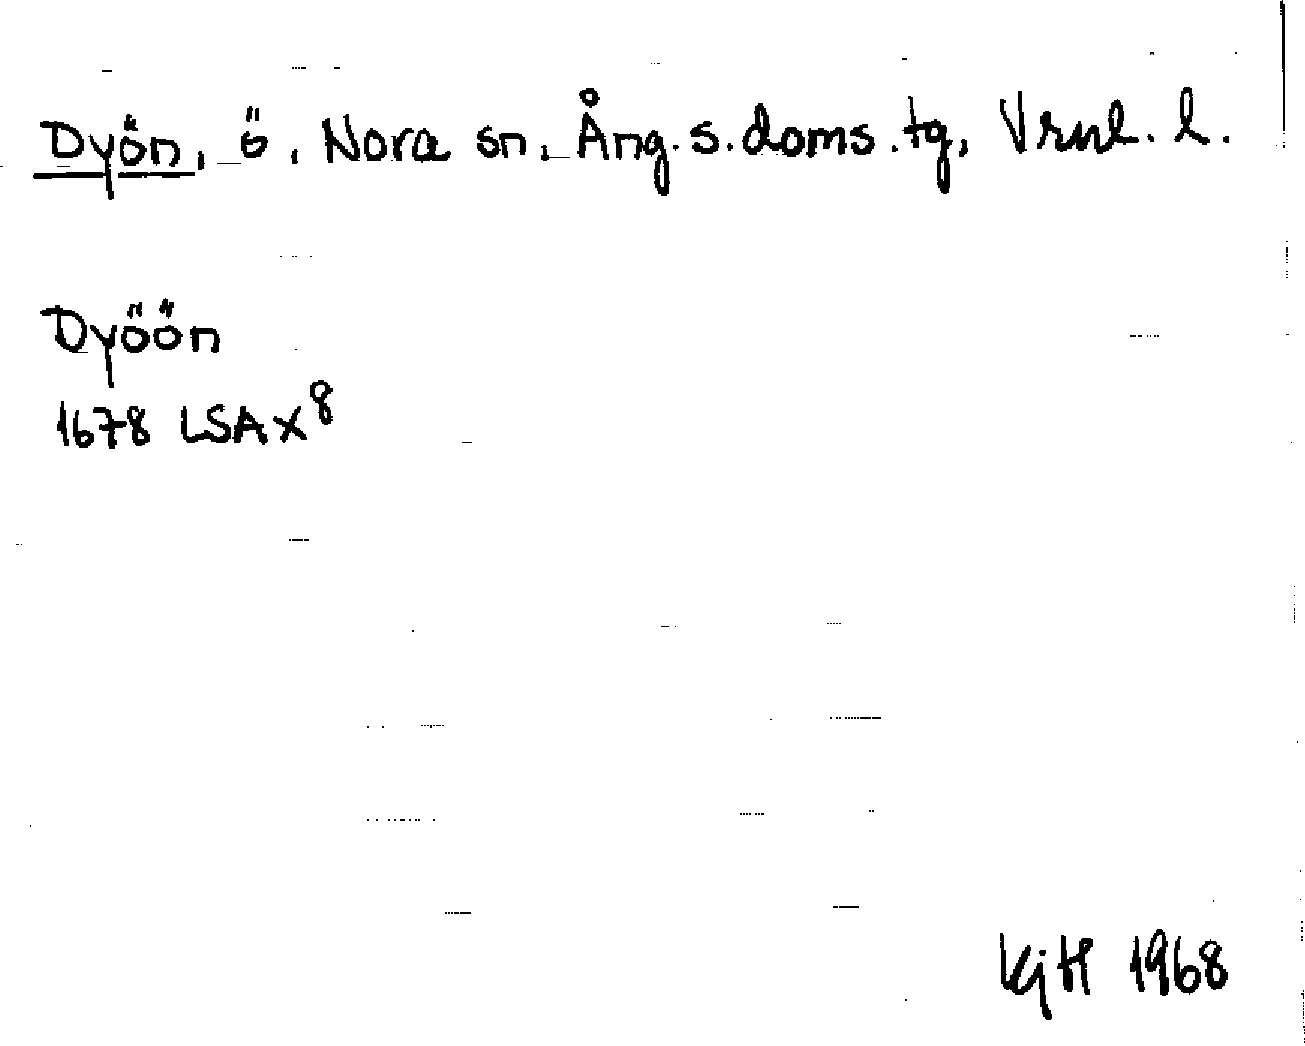 Dyön, ö, Nora sn, Ång. s. doms. tg, Vrnl. l.
Dyöön
1678 LSA X⁸
KjH 1968